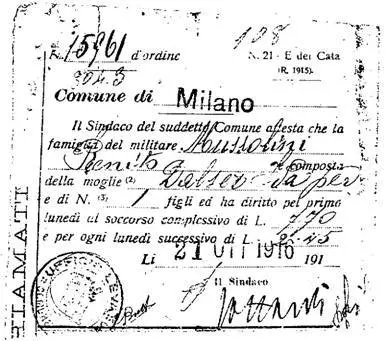 N. 15961 d'ordine 108 N. 21 - E dei Cata
(R. 1915).
Comune di Milano
Il Sindaco del suddetto Comune attesta che la
famiglia del militare Mussolini
Benito composta
della moglie (2) Dalser Ida
e di N. (3) 1 figli ed ha diritto per primo
lunedì al soccorso complessivo di L.
e per ogni lunedì successivo di L. 2.45
Li 21 1916 191
Il Sindaco